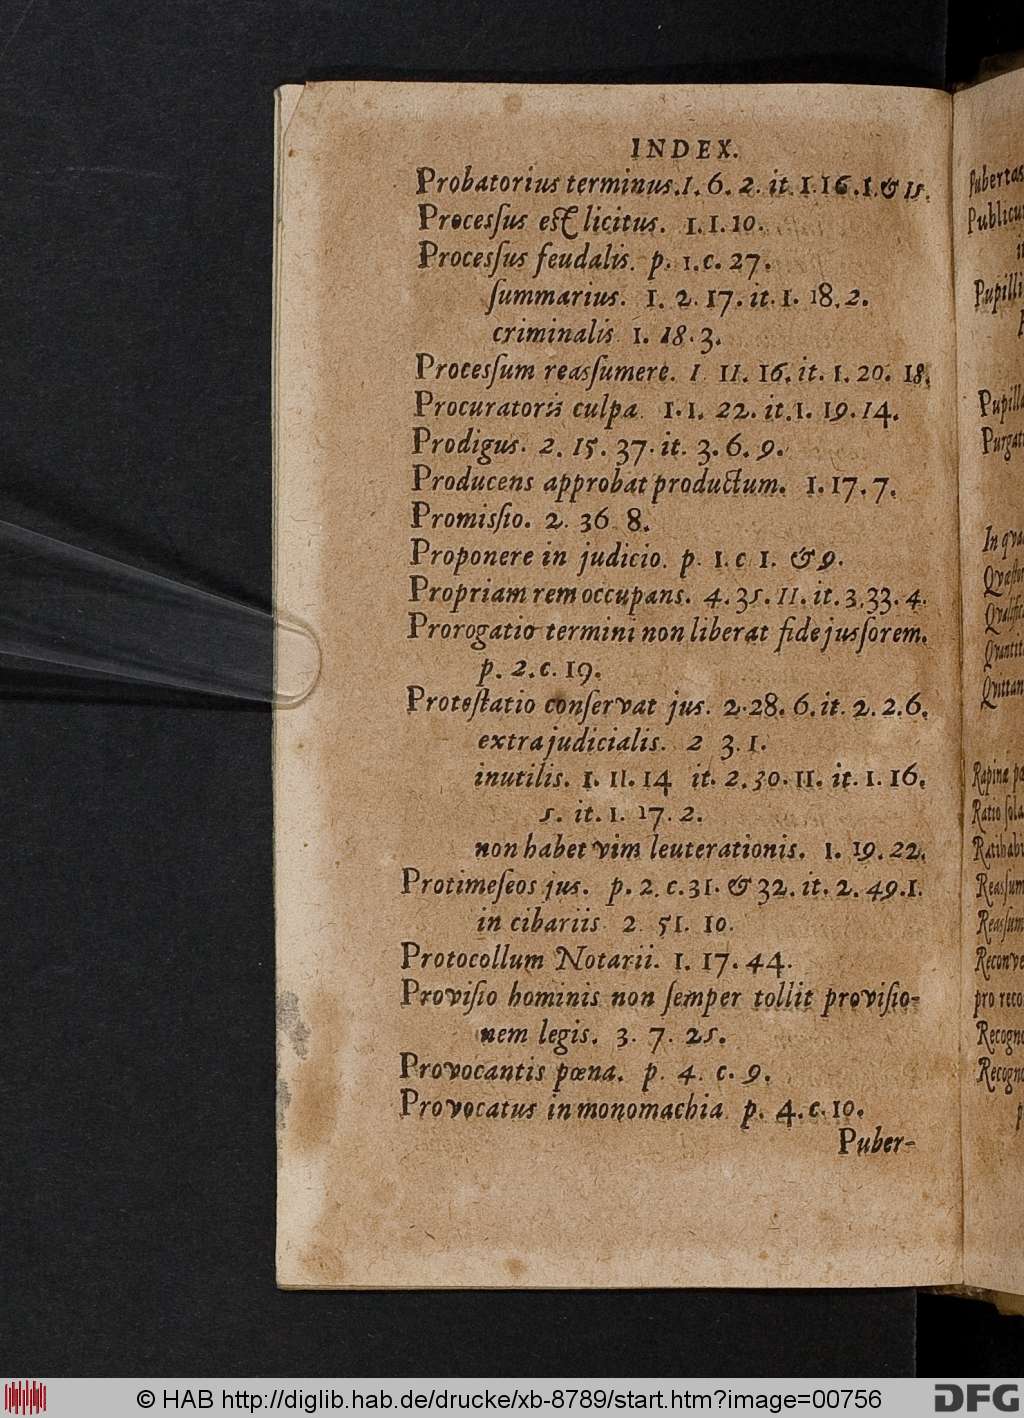 INDEX.
Probatorius terminus. 1. 6. 2. it. 1. 16. 1. & 15.
Processus est licitus. 1. 1. 10.
Proceſſus feudalis. p. 1. c. 27.
ſummarius. 1. 2. 17. it. 1. 18. 2.
criminalis 1. 18. 3.
Proceſſum reaſſumere. 1 11. 16. it. 1. 20. 18.
Procuratoris culpa. 1. 1. 22. it. 1. 19. 14.
Prodigus. 2. 15. 37. it. 3. 6. 9.
Producens approbat productum. 1. 17. 7.
Promiſſio. 2. 36 8.
Proponere in judicio. p. 1. c 1. & 9.
Propriam rem occupans. 4. 35. 11. it. 3. 33. 4.
Prorogatio termini non liberat fidejuſſorem.
p. 2. c. 19.
Proteſtatio conſervat jus. 2. 28. 6. it. 2. 2. 6.
extrajudicialis. 2 3. 1.
inutilis. 1. 11. 14 it. 2. 30. 11. it. 1. 16.
5. it. 1. 17. 2.
non habet vim leuterationis. 1. 19. 22.
Protimeſeos jus. p. 2. c. 31. & 32. it. 2. 49. 1.
in cibariis 2. 51. 10.
Protocollum Notarii. 1. 17. 44.
Proviſio hominis non ſemper tollit proviſio-
nem legis. 3. 7. 25.
Provocantis pœna. p. 4. c. 9.
Provocatus in monomachia. p. 4. c. 10.
Puber-
Pubertas
Pupilli
In
Rapina
Ratio
© HAB http://diglib.hab.de/drucke/xb-8789/start.htm?image=00756
DFG